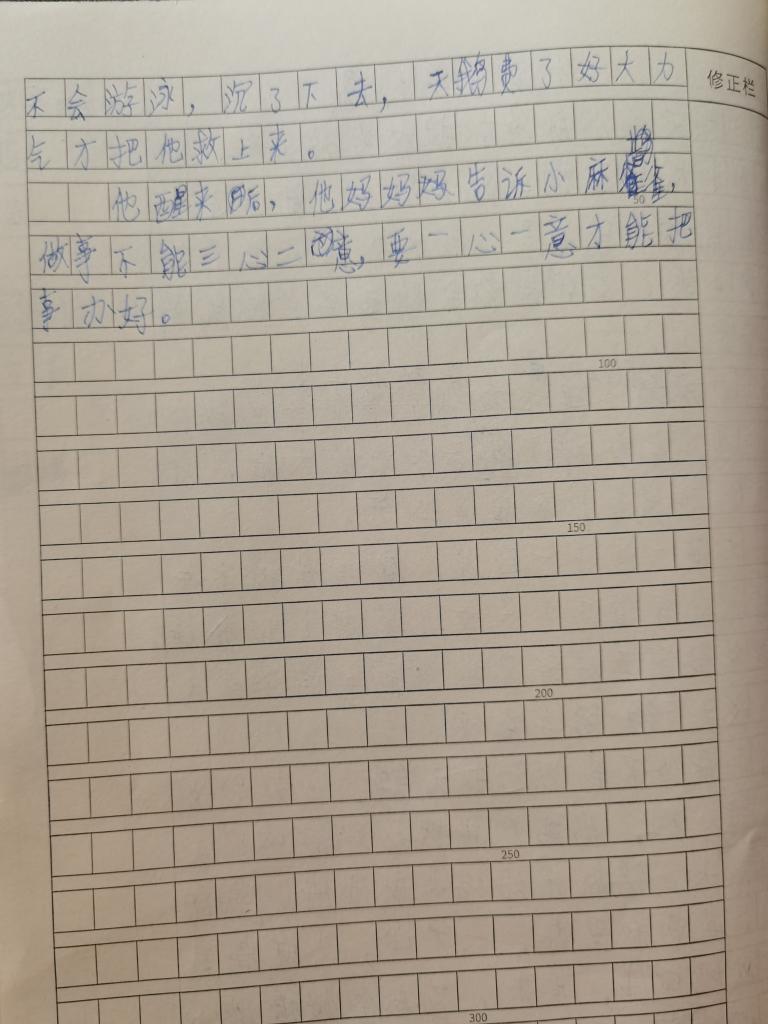 不会游泳，沉了下去，天鹅费了好大力
修正栏
气才把他救上来。
他醒来后，他妈妈妈告诉小麻雀，
50
做事不能三心二意，要一心一意才能把
事办好。
100
150
200
250
300